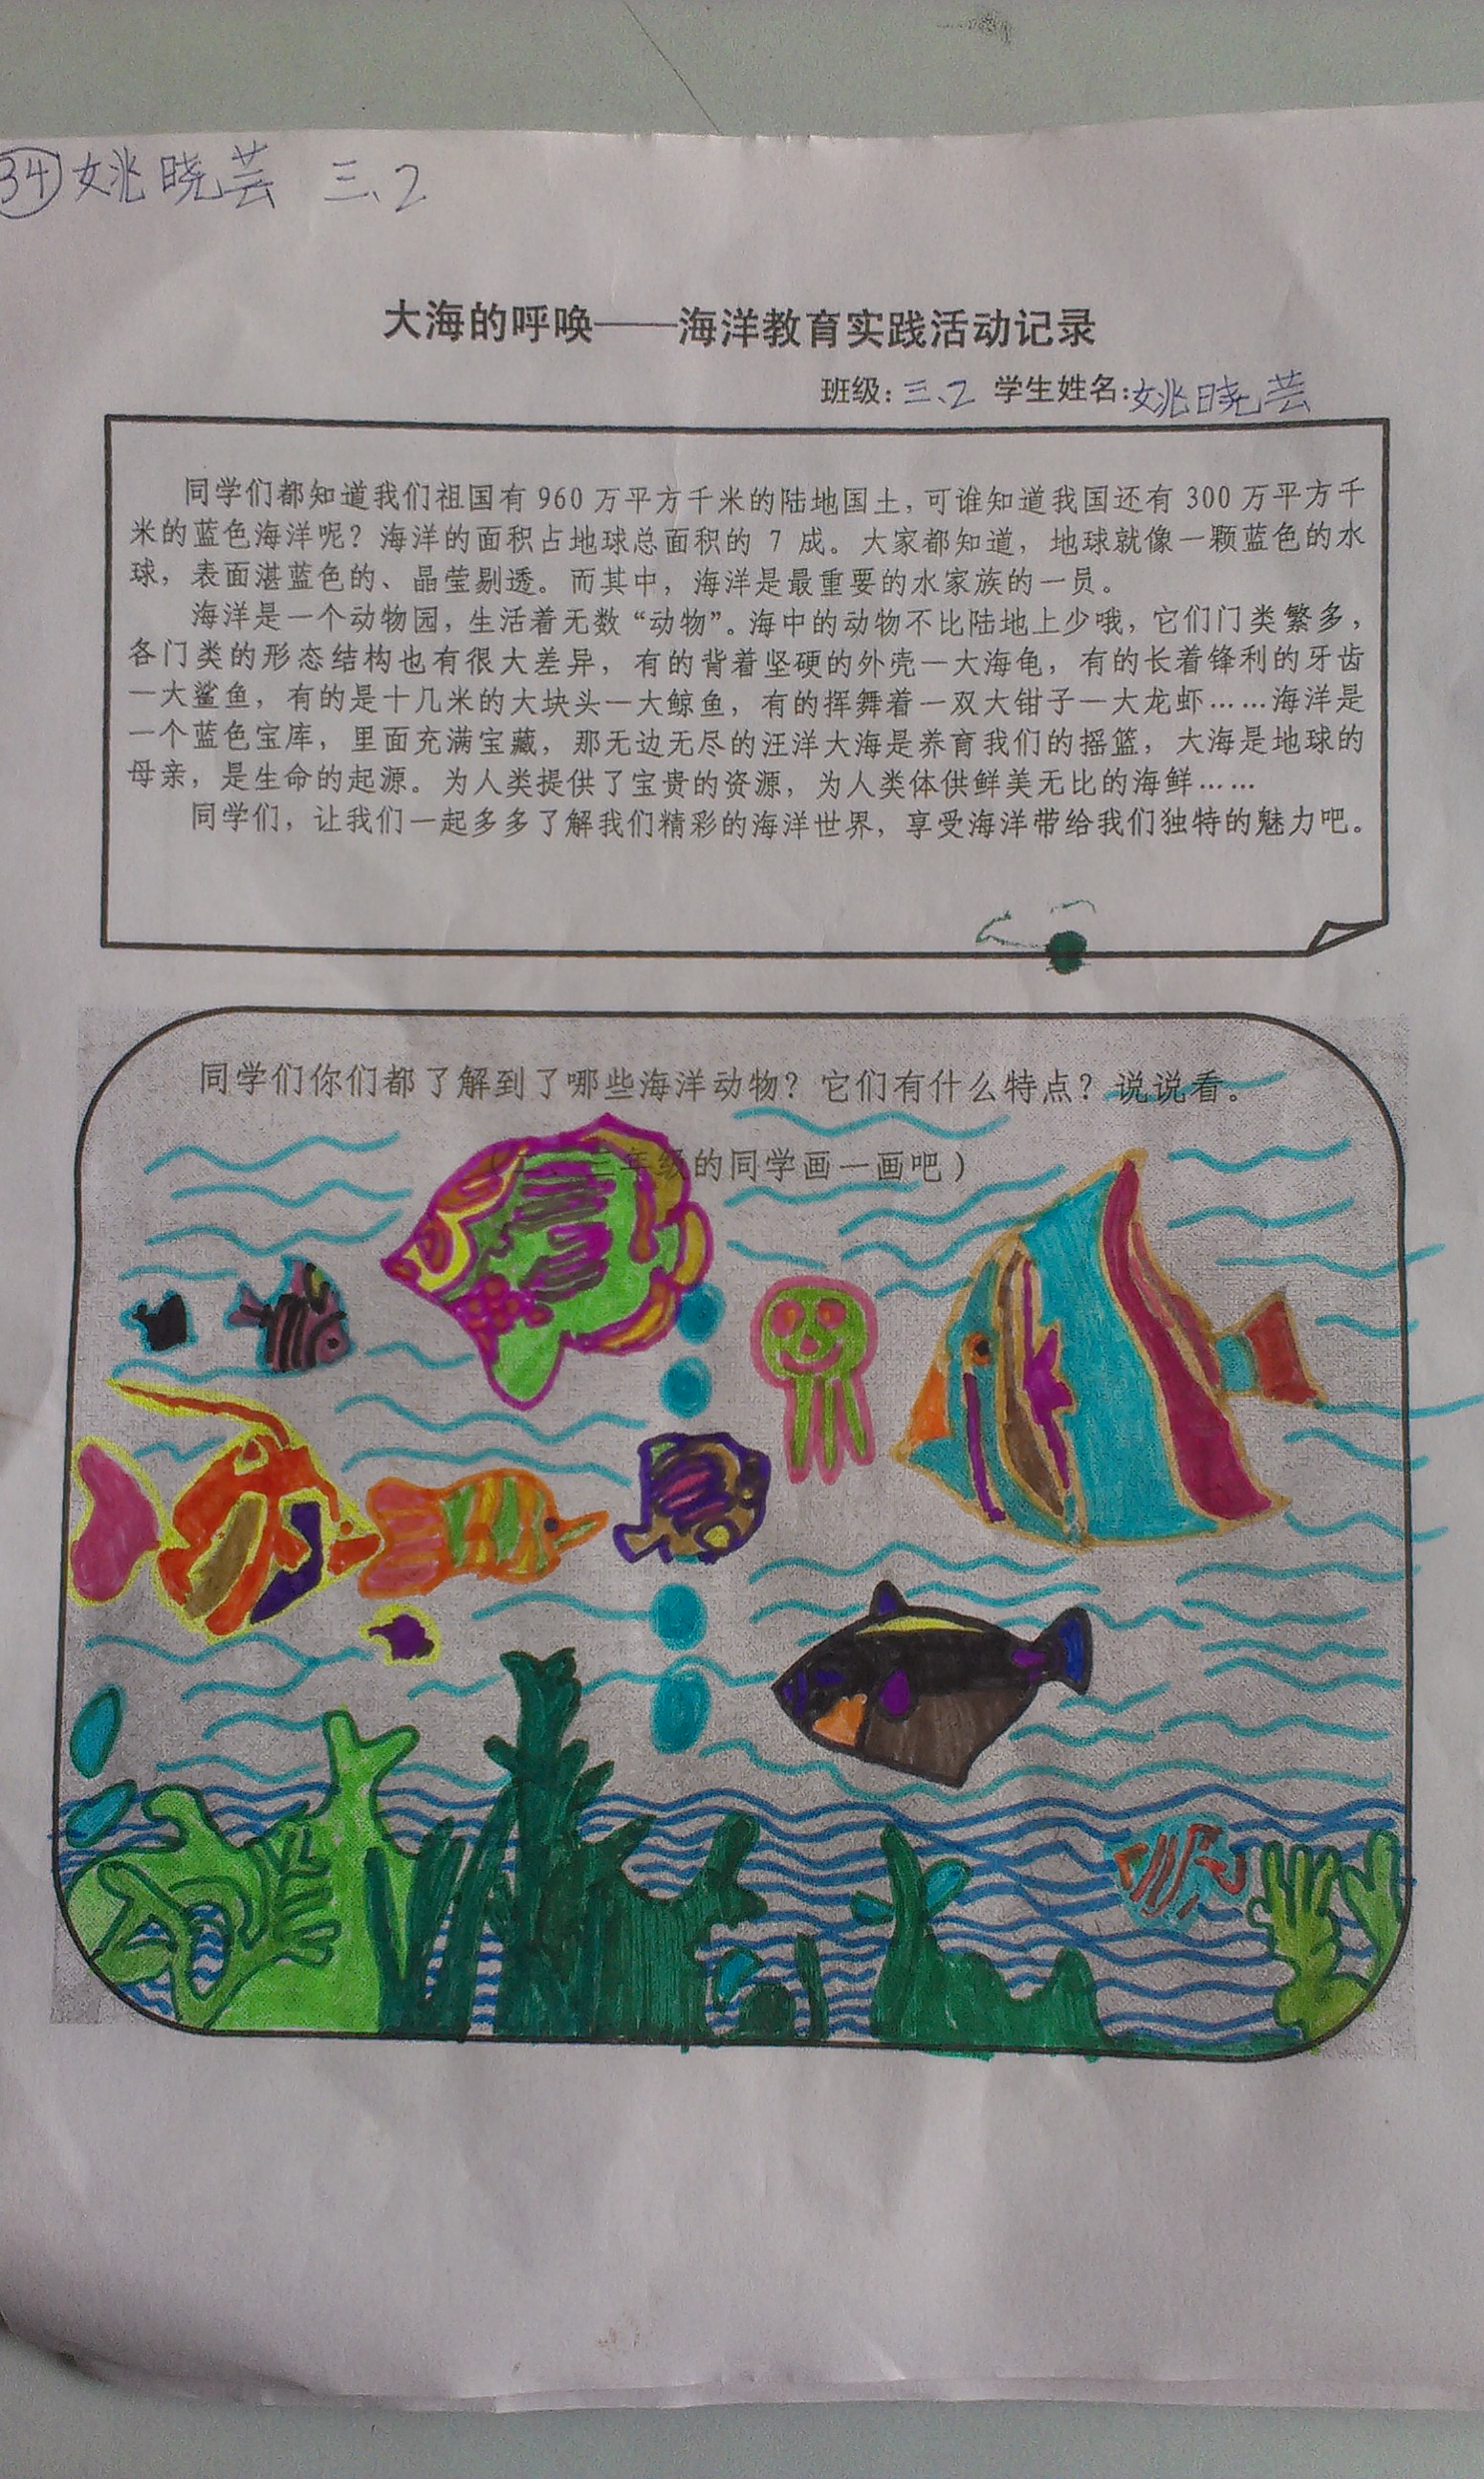 34 姚晓芸 三.2
大海的呼唤——海洋教育实践活动记录
班级:三.2 学生姓名:姚晓芸
同学们都知道我们祖国有 960 万平方千米的陆地国土,可谁知道我国还有 300 万平方千
米的蓝色海洋呢？海洋的面积占地球总面积的 7 成。大家都知道，地球就像一颗蓝色的水
球，表面湛蓝色的、晶莹剔透。而其中，海洋是最重要的水家族的一员。
海洋是一个动物园，生活着无数“动物”。海中的动物不比陆地上少哦，它们门类繁多，
各门类的形态结构也有很大差异，有的背着坚硬的外壳—大海龟，有的长着锋利的牙齿
—大鲨鱼，有的是十几米的大块头—大鲸鱼，有的挥舞着一双大钳子—大龙虾……海洋是
一个蓝色宝库，里面充满宝藏，那无边无尽的汪洋大海是养育我们的摇篮，大海是地球的
母亲，是生命的起源。为人类提供了宝贵的资源，为人类体供鲜美无比的海鲜……
同学们，让我们一起多多了解我们精彩的海洋世界，享受海洋带给我们独特的魅力吧。
同学们你们都了解到了哪些海洋动物？它们有什么特点？说说看。
年级的同学画一画吧）